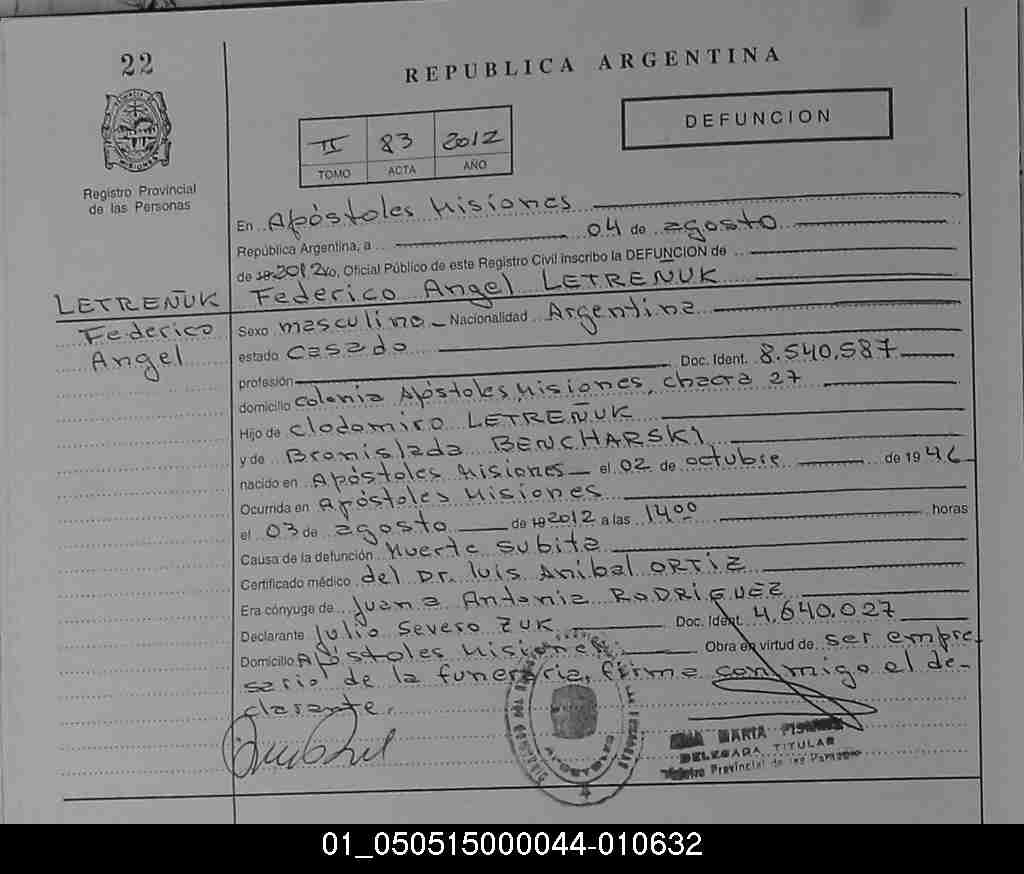 22
REPUBLICA ARGENTINA
DEFUNCION
II 83 2012
TOMO ACTA AÑO
Registro Provincial
de las Personas
En Apóstoles Misiones
República Argentina, a 04 de agosto
de 2012 yo, Oficial Público de este Registro Civil inscribo la DEFUNCION de
LETREÑUK Federico Angel LETREÑUK
Federico Sexo masculino Nacionalidad Argentina
Angel estado casado
profesión Doc. Ident. 8.540.587
domicilio colonia Apóstoles Misiones, chacra 27
Hijo de Clodomiro LETREÑUK
y de Bronislada BENCHARSKI
nacido en Apóstoles Misiones el 02 de octubre de 1946
Ocurrida en Apóstoles Misiones
el 03 de agosto de 2012 a las 14 00 horas
Causa de la defunción Muerte subita
Certificado médico del Dr. Luis Anibal ORTIZ
Era cónyuge de Juana Antonia RODRIGUEZ
Declarante Julio Severo ZUK Doc. Ident. 4.640.027
Domicilio Apóstoles Misiones Obra en virtud de ser empre
sario de la funeraria, firma conmigo el de-
clarante.
MARIA
DELEGADA TITULAR
Registro Provincial de las Personas
4
01_050515000044-010632